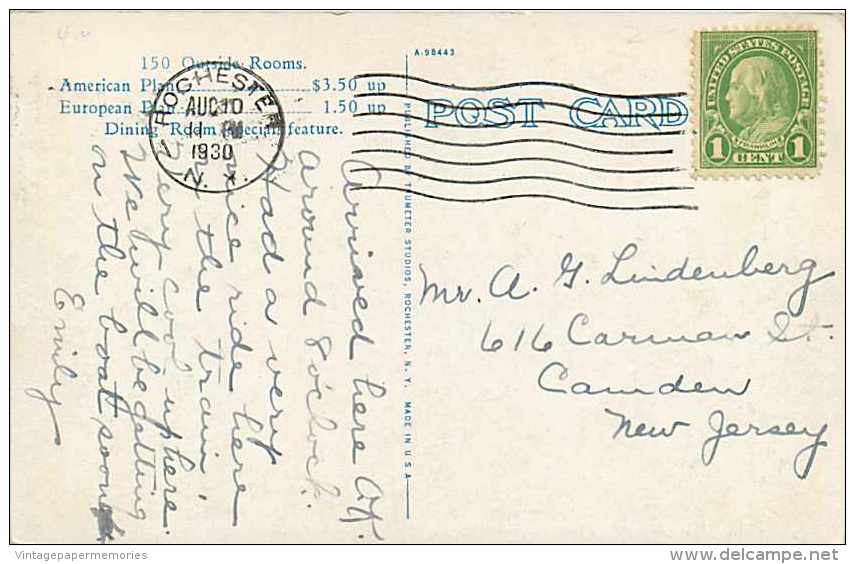 150 Outside Rooms.
American Plan $3.50 up
European Plan 1.50 up
Dining Room Special feature.
ROCHESTER
AUG 10
11 PM
1930
N. Y.
A-98443
POST CARD
UNITED STATES POSTAGE
FRANKLIN
1 CENT 1
PUBLISHED BY TRUMETER STUDIOS, ROCHESTER, N. Y. MADE IN U S A
Arrived here OK.
around 8 o'clock.
Had a very
nice ride here
on the train.
Very cool up here.
We will be getting
on the boat soon
Emily
Mr. A. G. Lindenberg
616 Carman St.
Camden
New Jersey
Vintagepapermemories
delcampe.net